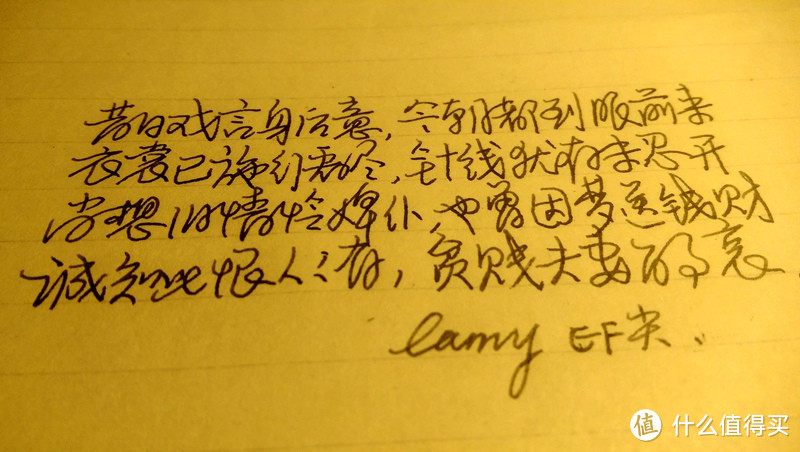 昔日戏言身后意，今朝都到眼前来
衣裳已施行看尽，针线犹存未忍开
尚想旧情怜婢仆，也曾因梦送钱财
诚知此恨人人有，贫贱夫妻百事哀
Lamy EF尖、
值 什么值得买